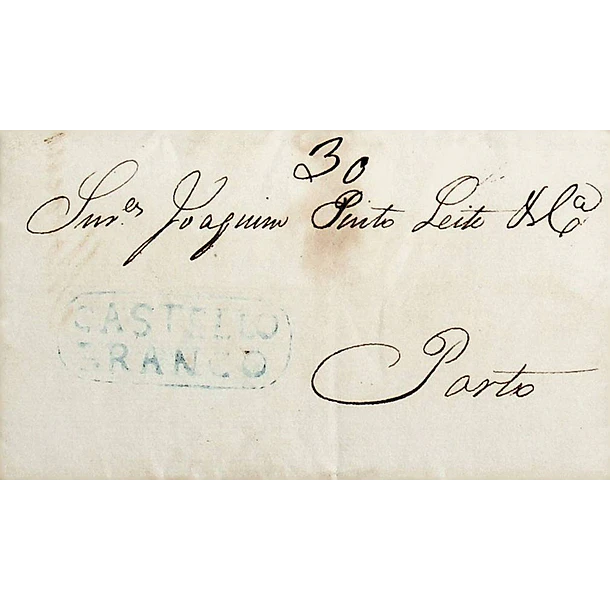 30
Snr.es Joaquim Pinto Leite & Ca
CASTELLO
BRANCO
Porto